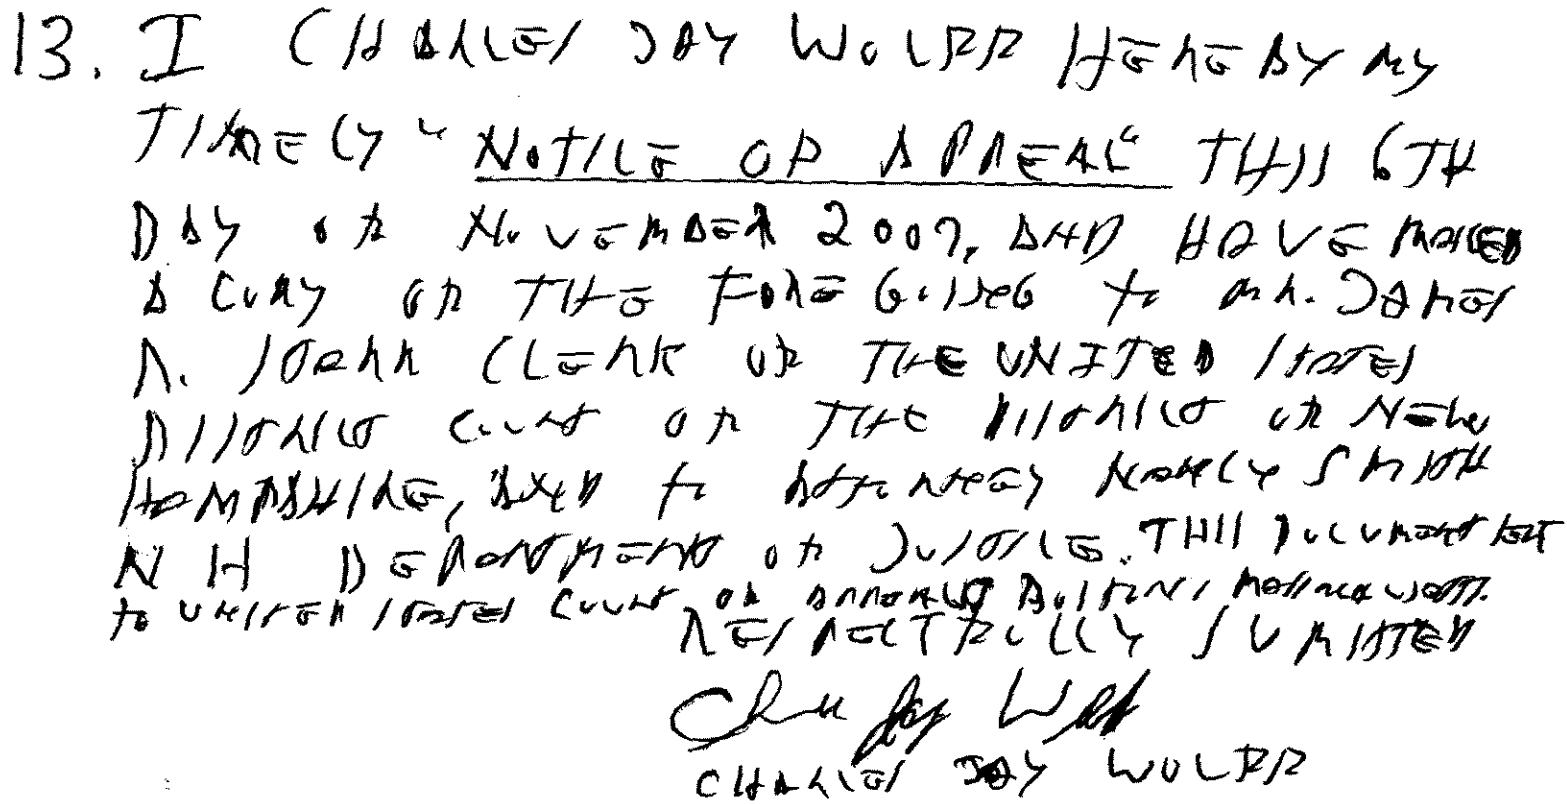 13. I CHARLES JAY WOLFF HEREBY MY
TIMELY "NOTICE OF APPEAL" THIS 6TH
DAY OF NOVEMBER 2007, AND HAVE MAILED
A COPY OF THE FOREGOING TO MR. JAMES
R. STARR CLERK OF THE UNITED STATES
DISTRICT COURT OF THE DISTRICT OF NEW
HAMPSHIRE, AND TO ATTORNEY NANCY SMITH
NH DEPARTMENT OF JUSTICE. THIS DOCUMENT SENT
TO UNITED STATES COURT OF APPEALS BOSTON, MASSACHUSETTS.
RESPECTFULLY SUMITTED
Charles Jay Wolff
CHARLES JAY WOLFF